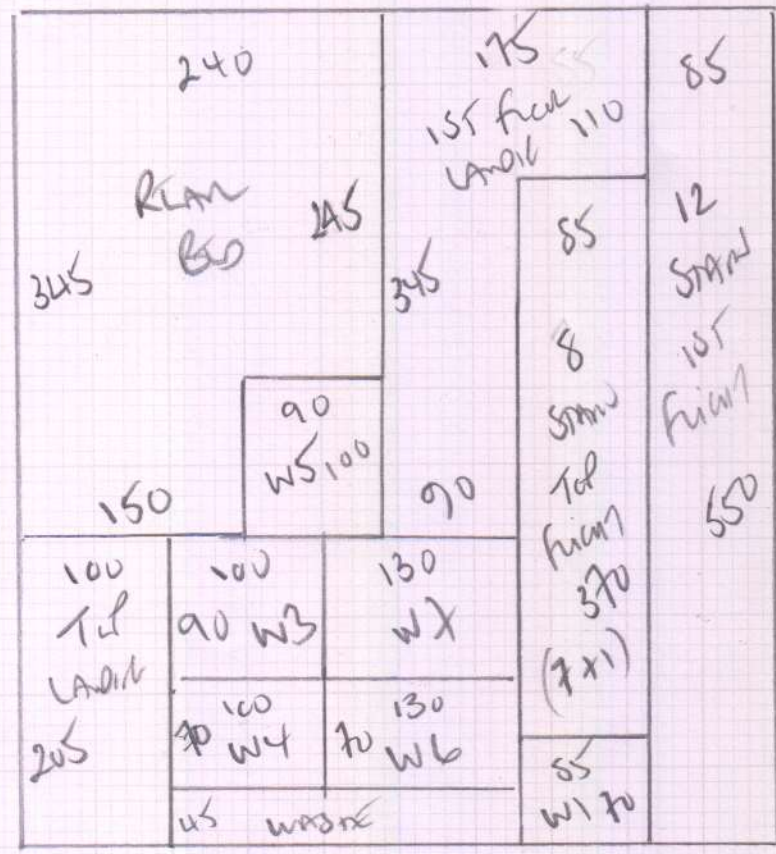 240
REAR
BED
245
345
150
90
W5 100
175
85
1ST FLOOR
LANDIN
110
345
90
85
8
STAIR
TOP
FLIGHT
370
(7x1)
85
12
STAIR
1ST
FLIGHT
550
100
TOP
LANDIN
205
100
90 W3
130
W7
100
70 W4
130
70 W6
45 WASTE
85
W1 70